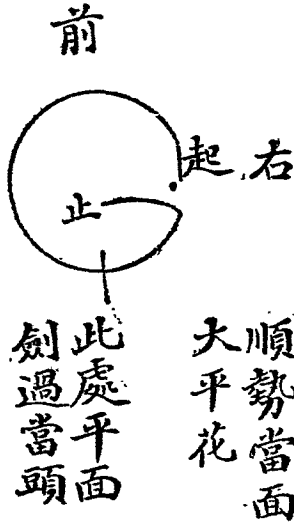 前
右
起
止
順勢當面
大平花
此處平面
劍過當頭